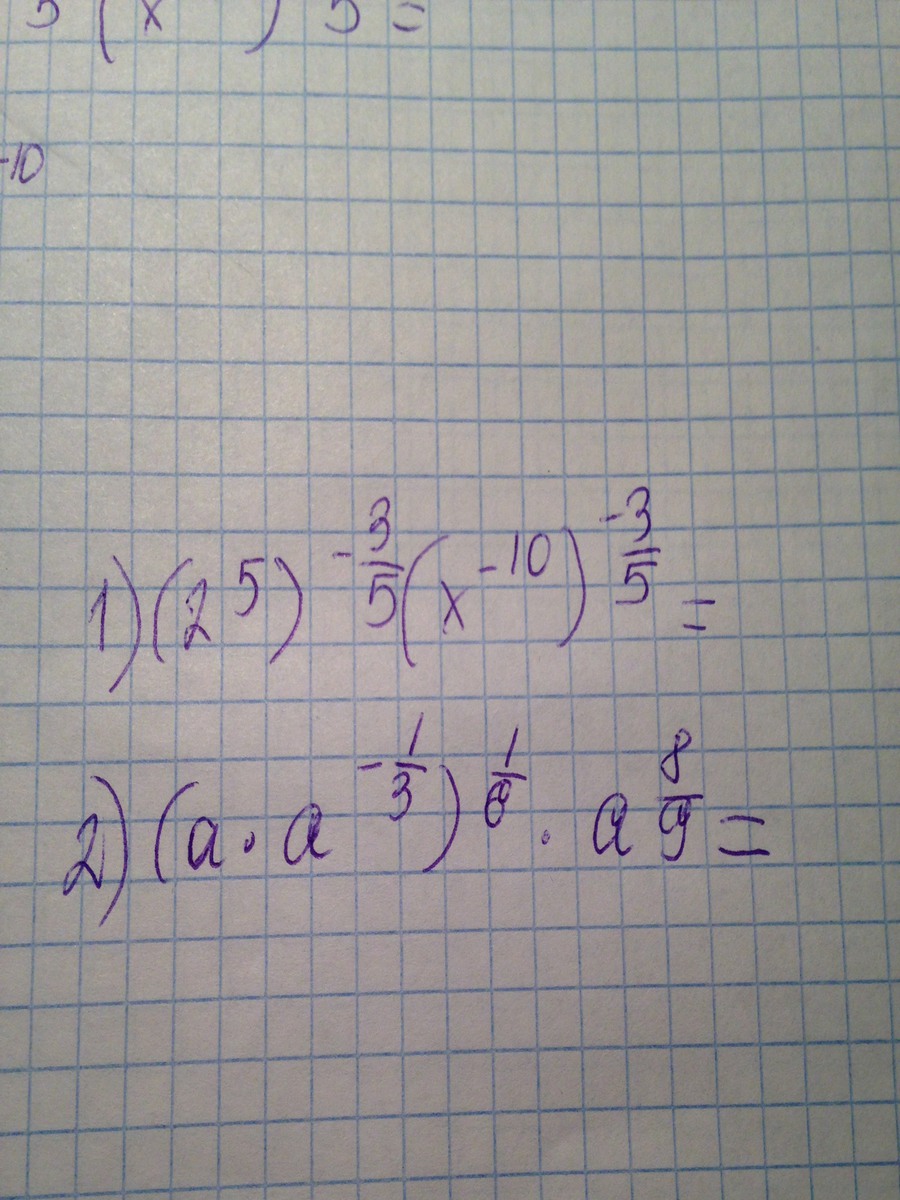 5 (x ) 5 =
-10
1) (2^5)^(-3/5) (x^(-10))^(-3/5) =
2) (a · a^(-1/3))^(1/6) · a^(8/9) =